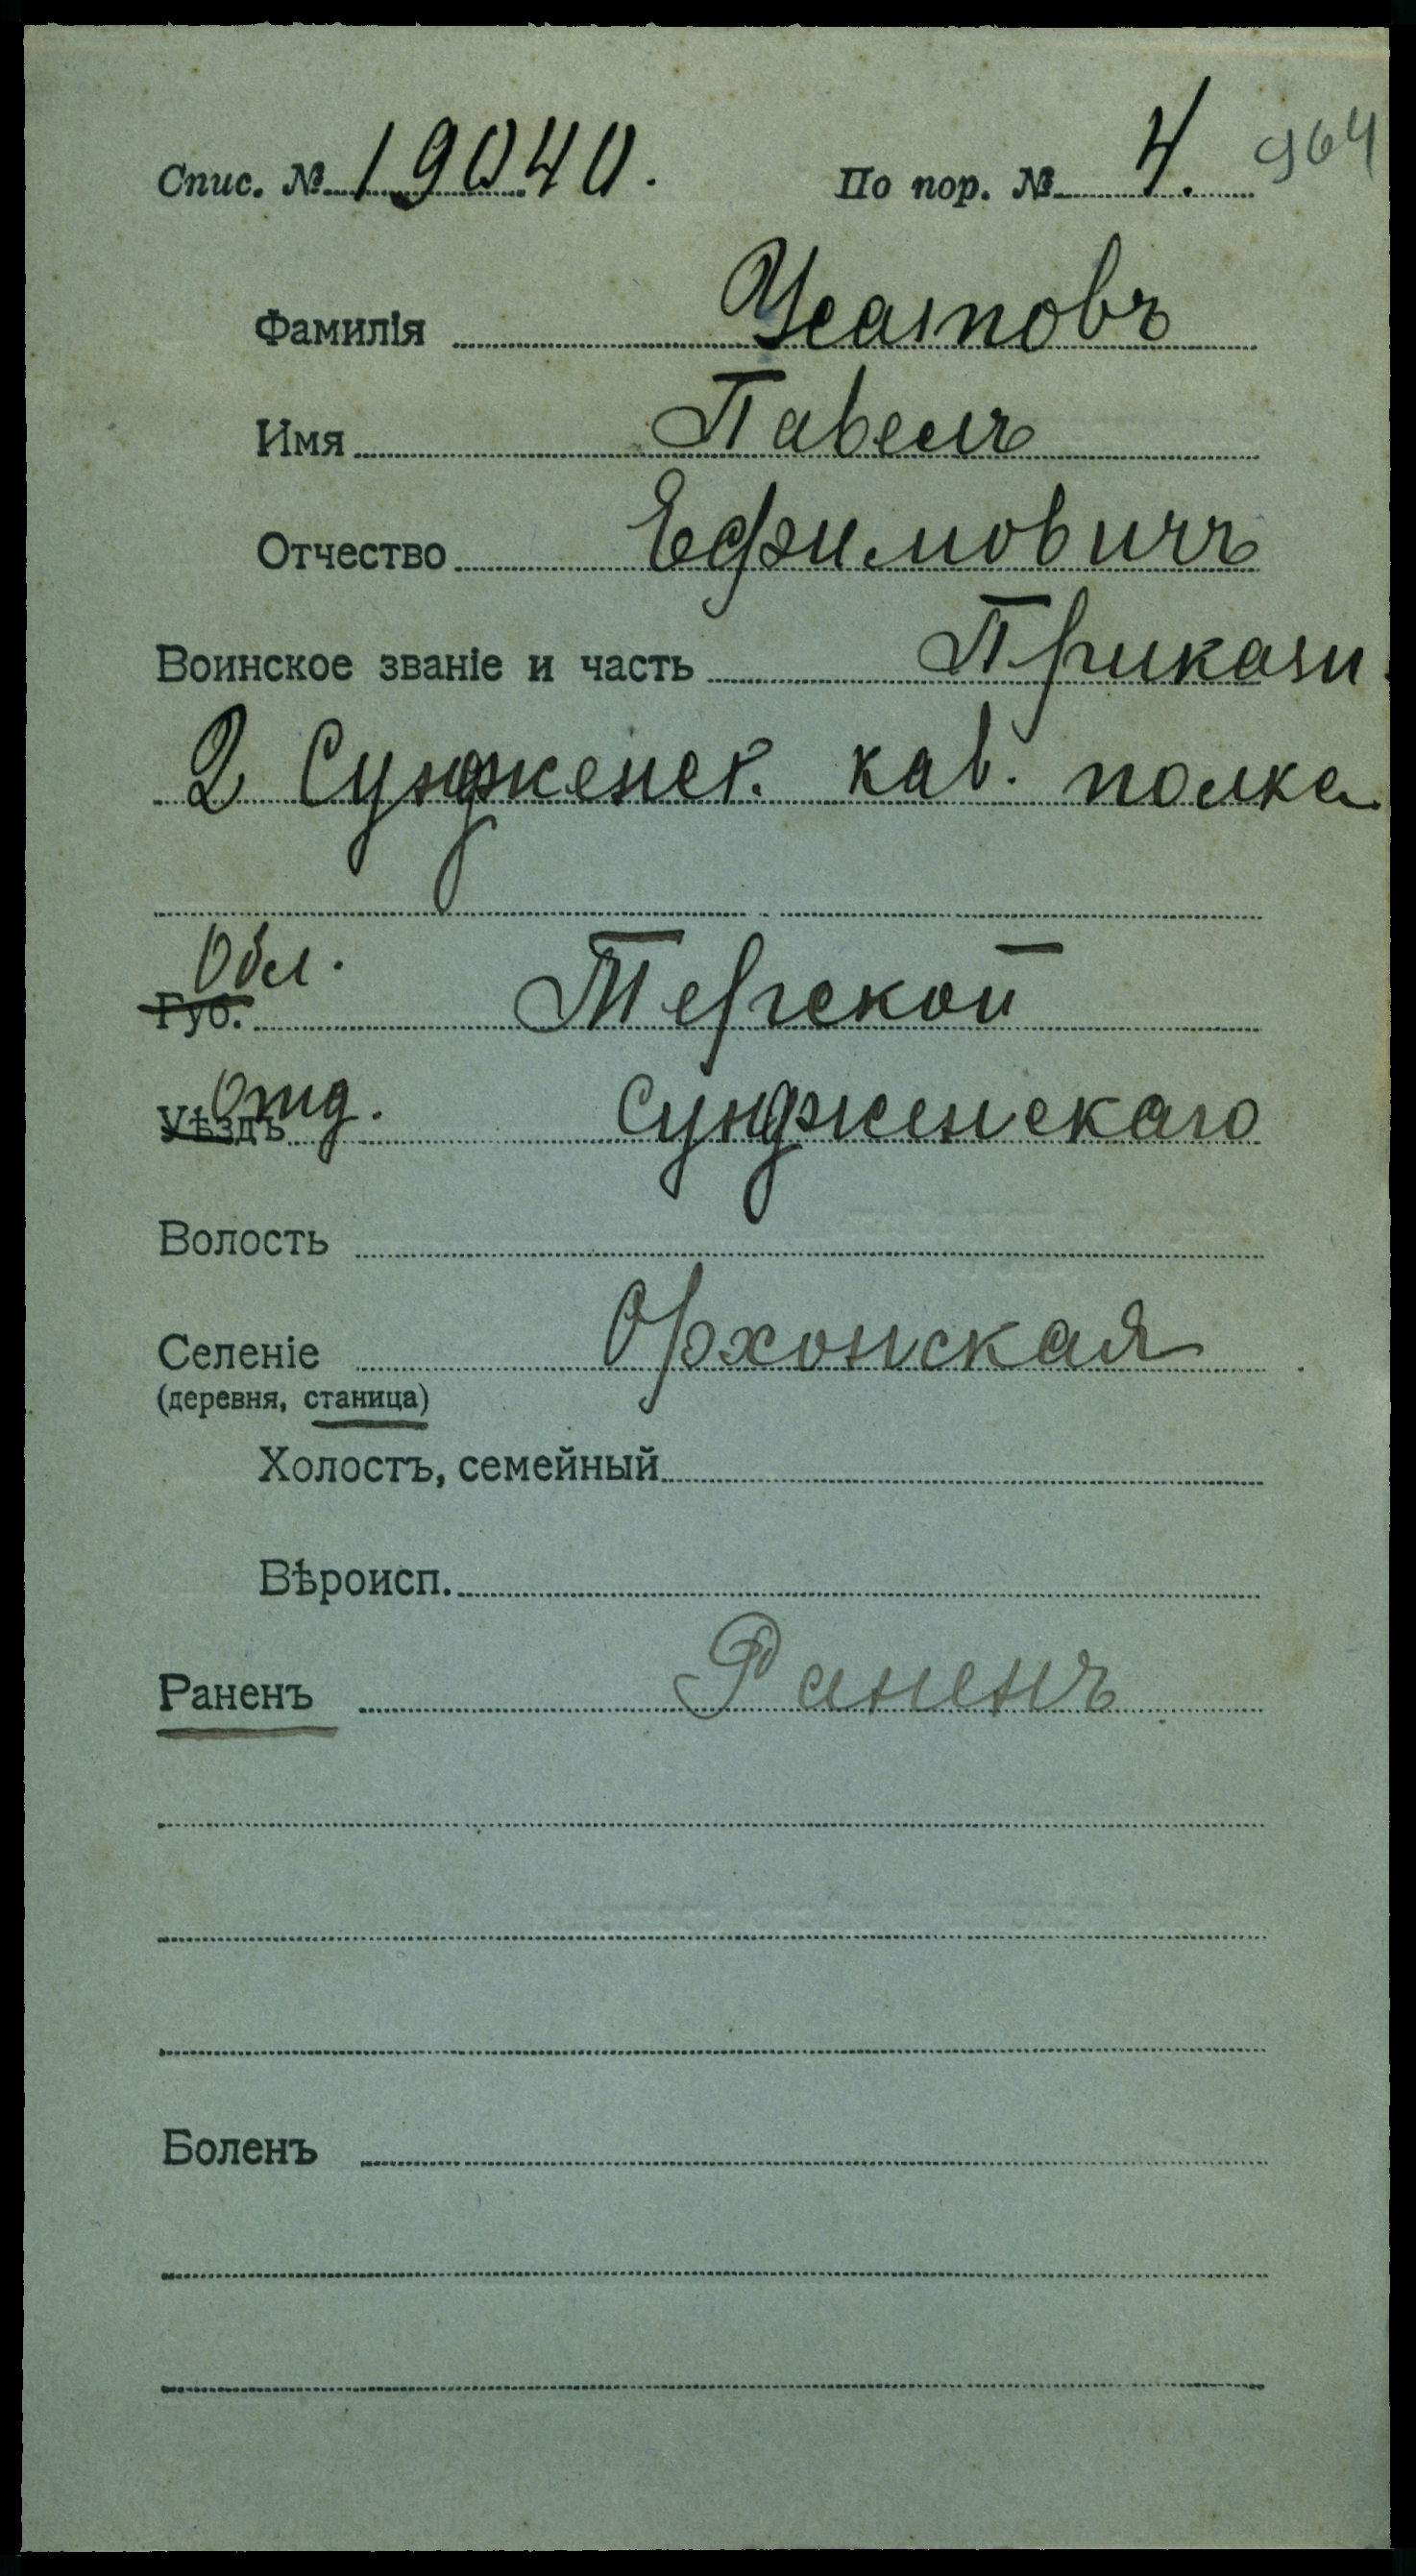 Спис. № 19040. По пор. № 4. 964
Фамилія Усатовъ
Имя Павелъ
Отчество Ефимовичъ
Воинское званіе и часть Приказн.
2 Сундженск. кав. полка
Обл.
Губ. Терской
Отд.
Уѣздъ Сундженскаго
Волость
Селеніе Орхонская
(деревня, станица)
Холостъ, семейный
Вѣроисп.
Раненъ Раненъ
Боленъ